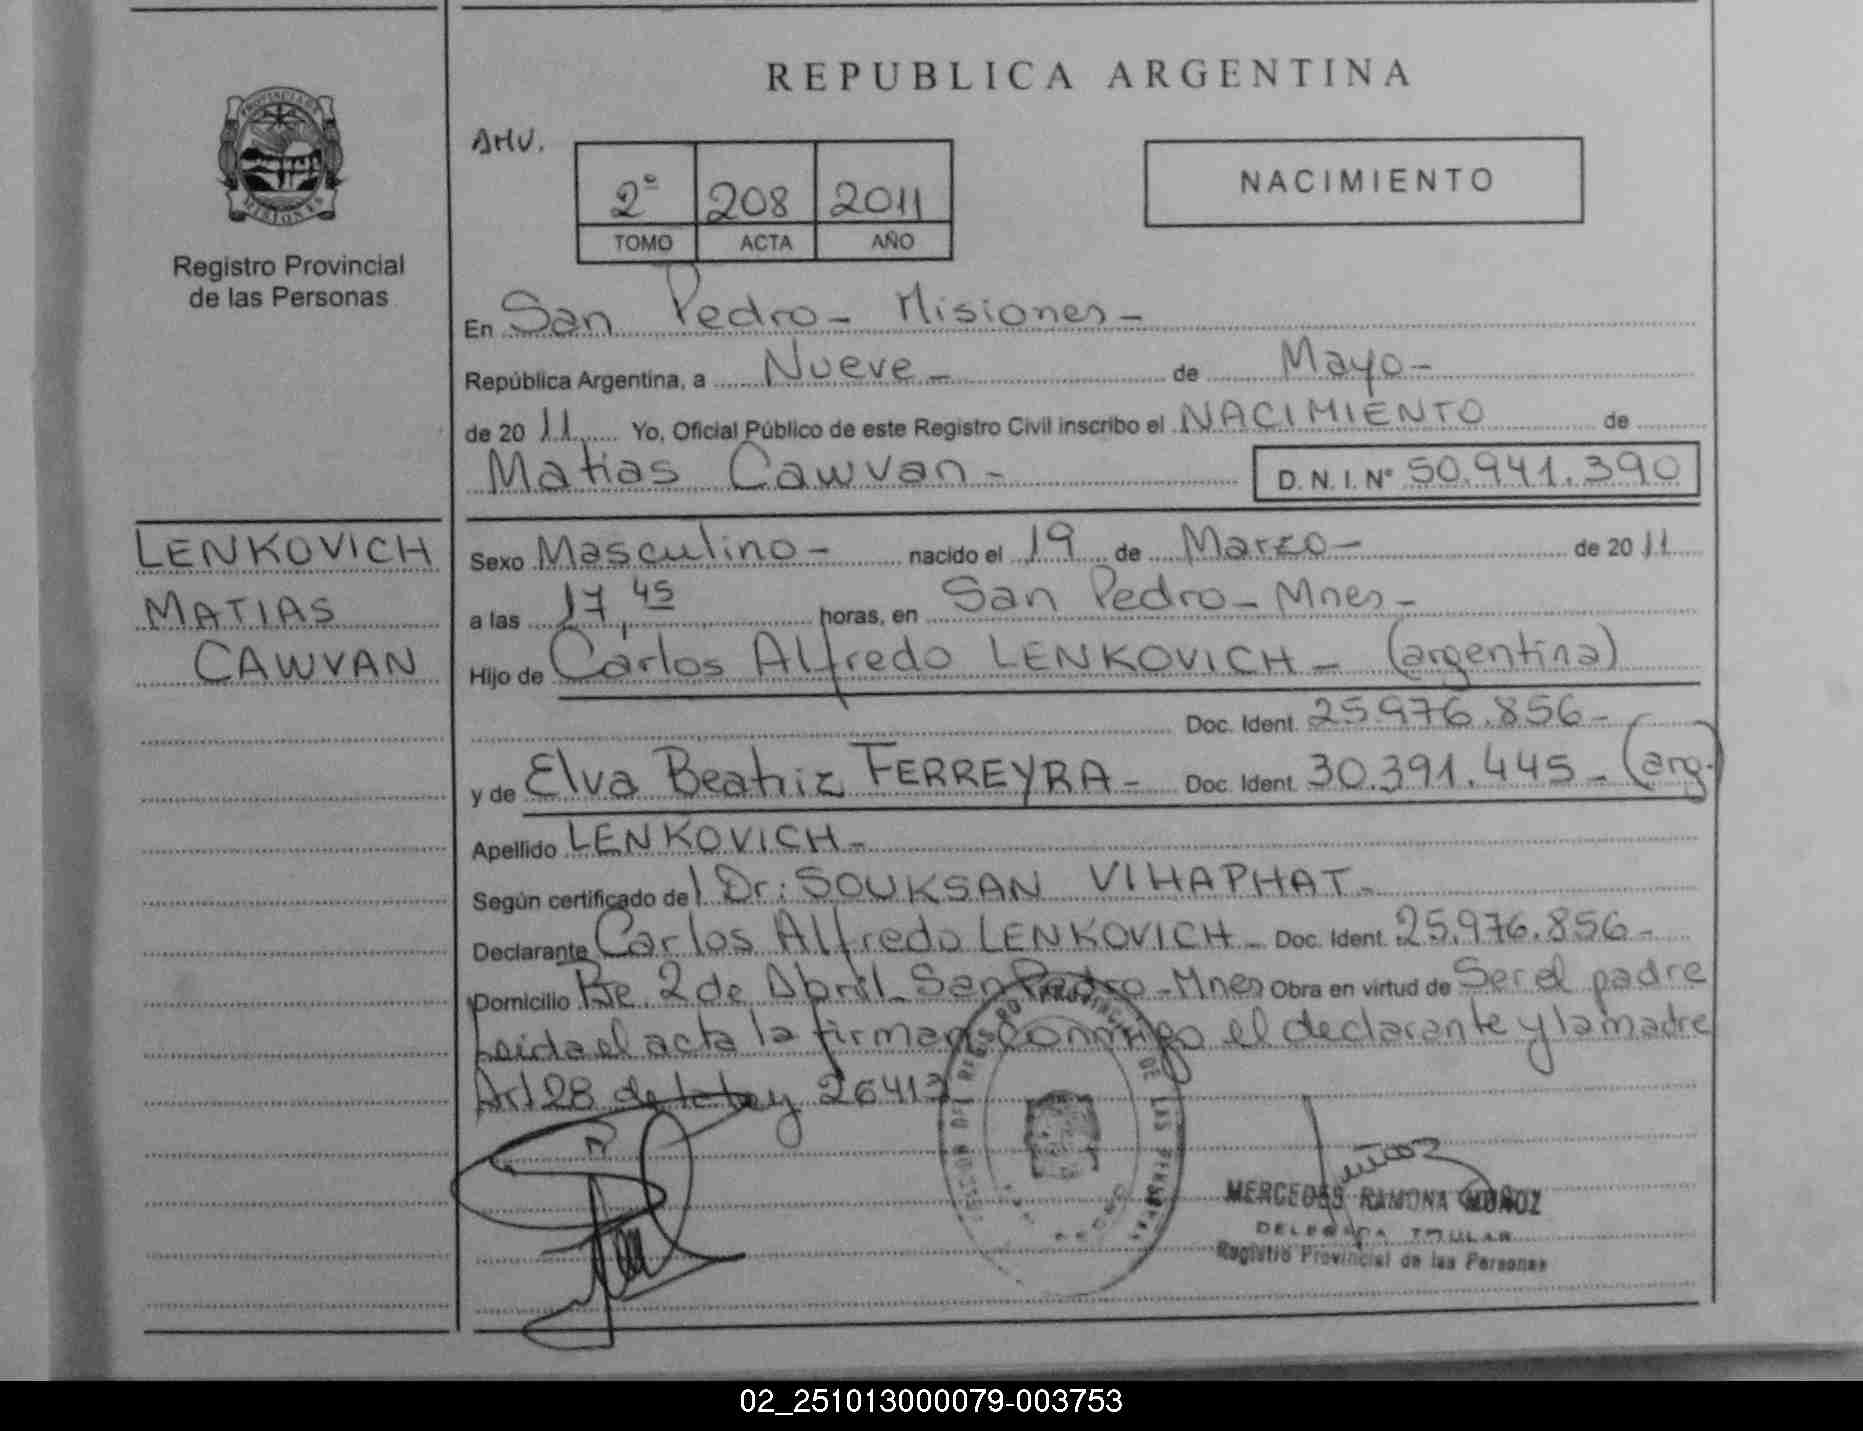 REPUBLICA ARGENTINA
PROVINCIA DE
MISIONES
Registro Provincial
de las Personas
AHV.
2° 208 2011
TOMO ACTA AÑO
NACIMIENTO
En San Pedro - Misiones -
República Argentina, a Nueve - de Mayo -
de 20 11 Yo, Oficial Público de este Registro Civil inscribo el NACIMIENTO de
Matias Cawvan - D. N. I. N° 50.941.390
LENKOVICH
MATIAS
CAWVAN
Sexo Masculino - nacido el 19 de Marzo - de 20 11
a las 17,45 horas, en San Pedro - Mnes -
Hijo de Carlos Alfredo LENKOVICH - (argentina)
Doc. Ident. 25.976.856 -
y de Elva Beatriz FERREYRA - Doc. Ident. 30.391.445 - (arg.)
Apellido LENKOVICH -
Según certificado del Dr: SOUKSAN VIHAPHAT -
Declarante Carlos Alfredo LENKOVICH - Doc. Ident. 25.976.856 -
Domicilio Bº 2 de Abril - San Pedro - Mnes Obra en virtud de Ser el padre
Leida el acta la firman conmigo el declarante y la madre
Art 28 de la ley 26413
REGISTRO PROVINCIAL DE LAS PERSONAS
Muñoz
MERCEDES RAMONA MUÑOZ
DELEGADA TITULAR
Registro Provincial de las Personas
02_251013000079-003753